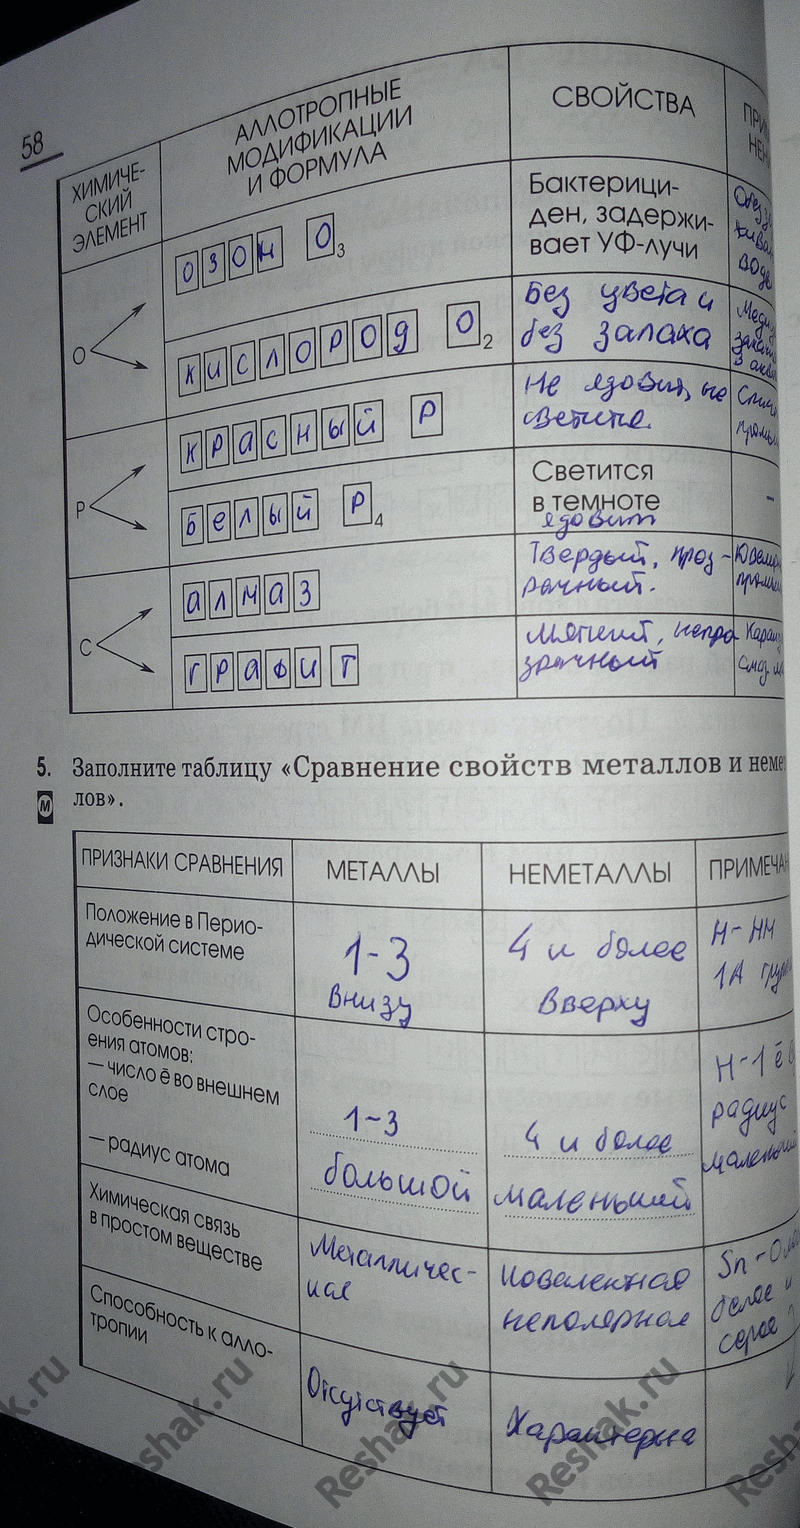 58
ХИМИЧЕ-
СКИЙ
ЭЛЕМЕНТ
АЛЛОТРОПНЫЕ
МОДИФИКАЦИИ
И ФОРМУЛА
СВОЙСТВА
ПРИ
НЕН
О
озон О3
Бактерици-
ден, задержи-
вает УФ-лучи
воде
кислород О2
Без цвета и
без запаха
Р
красный Р
Не ядовит, не
светится.
белый Р4
Светится
в темноте
ядовит
–
С
алмаз
Твердый, проз-
рачный.
графит
Мягкий, непро-
зрачный
5. Заполните таблицу «Сравнение свойств металлов и неме
М лов».
ПРИЗНАКИ СРАВНЕНИЯ
МЕТАЛЛЫ
НЕМЕТАЛЛЫ
ПРИМЕЧАН
Положение в Перио-
дической системе
1-3
внизу
4 и более
вверху
Н-НМ
1А груп
Особенности стро-
ения атомов:
— число ē во внешнем
слое
— радиус атома
1-3
большой
4 и более
маленький
Н-1ē
радиус
маленький
Химическая связь
в простом веществе
Металличес-
кая
Ковалентная
неполярная
Sn-Оло
белое и
серое
Способность к алло-
тропии
Отсутствует
Характерна
Reshak.ru
Reshak.ru
Reshak.ru